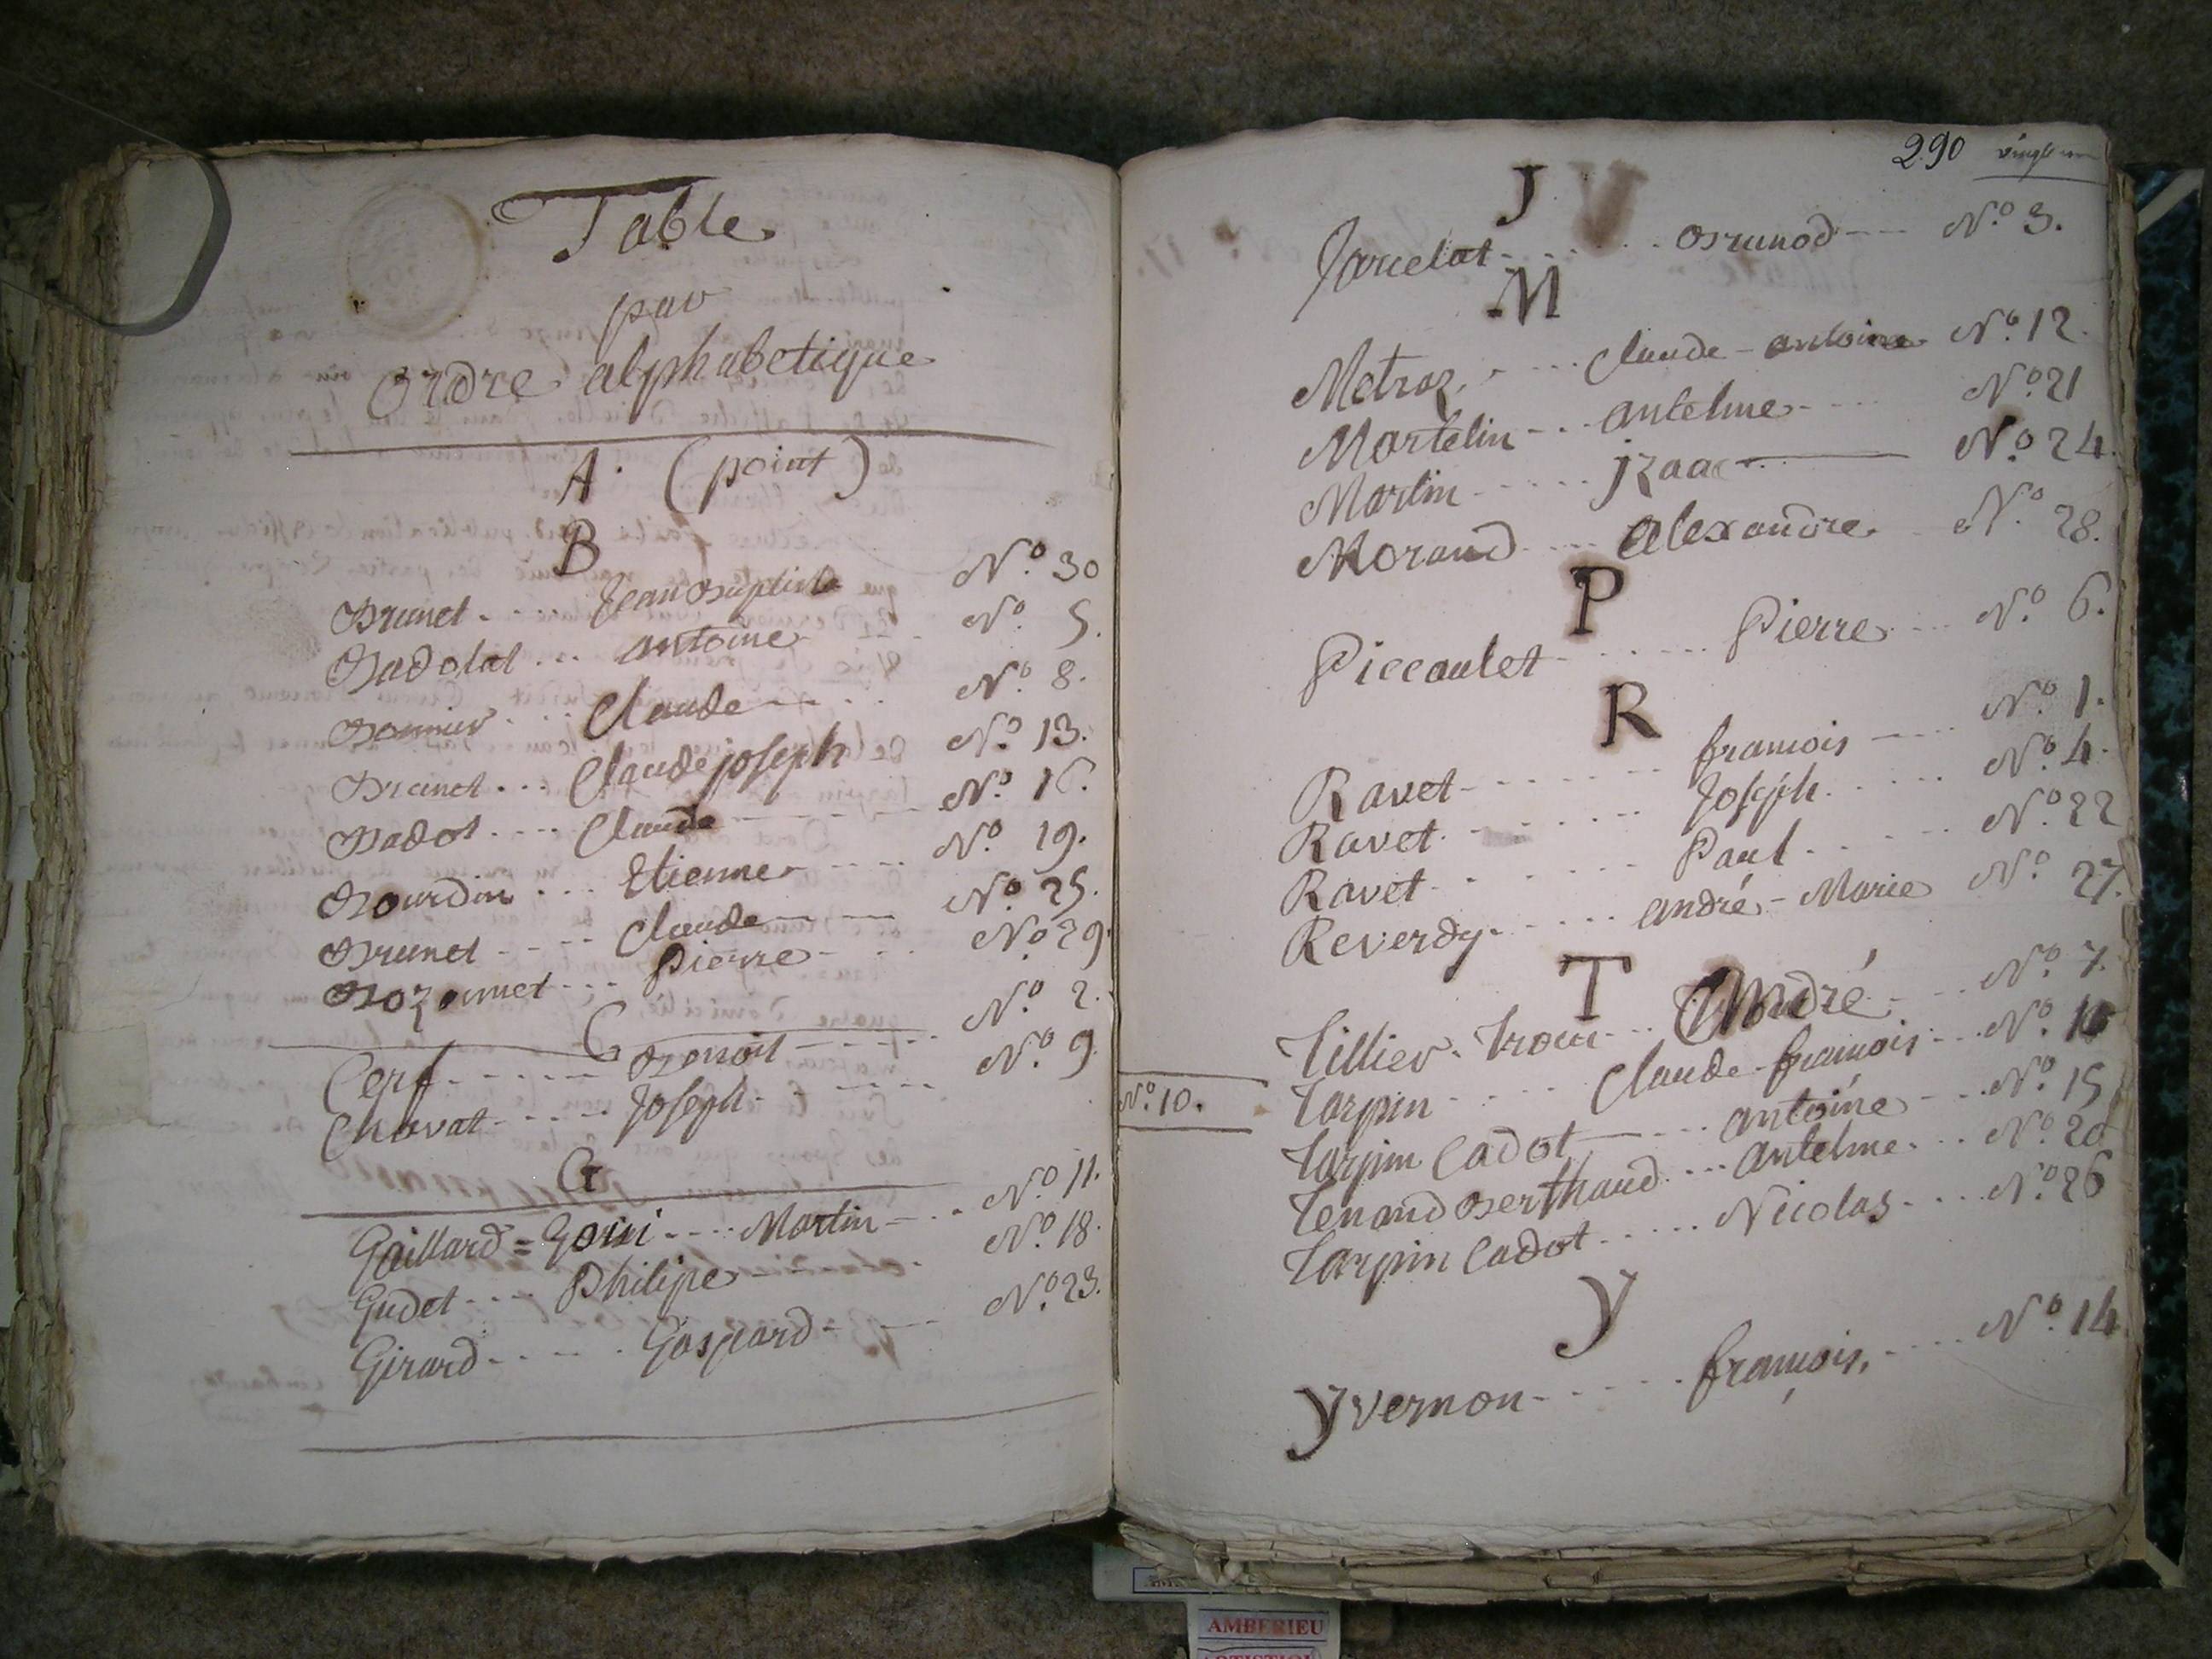 Table
par
ordre alphabetique
A. (point)
B
Brunet . . . . Jean Baptiste N.º 30
Badolat . . . antoine N.º 5.
Bonnier . . . . Claude - - - . . N.º 8.
Brunet . . . Claude joseph N.º 13.
Badol . . . . Claude - - - - - N.º 16.
Bourdin . . . Etienne - - - - - N.º 19.
Brunet - - - - Claude - - - N.º 25.
Bozonnet - - - Pierre - - . . N.º 29.
C
Cerf - - - - - - Benoit - - - - - - N.º 2.
Chavat - - - - Joseph - - - - - - N.º 9.
G
Gaillard = Goini - - - - Martin - - . N.º 11.
Gudet - - - - Philipe - - - N.º 18.
Girard - - - - . Gaspard - - - N.º 23.
290 vingt
J
Jancelat - . . . . . . Brunod - - - N.º 3.
M
Metraz . - . . . . Claude - antoine N.º 12.
Martelin - - . . antelme - - - - N.º 21
Martin - - - . . . jzaac N.º 24.
Morand - - - - alexandre N.º 28.
P
Piccoulet - . . . . . . Pierre . . . N.º 6.
R
Ravet - - - - - - - françois - - - - N.º 1.
Ravet - - - - - - Joseph . . . . . N.º 4.
Ravet - . - - - - Paul . . . . . N.º 22
Reverdy - . . . . . andré - Marie N.º 27.
T
Tillier . trom - - - André - - - N.º 7.
N.º 10. Tarpin - - - - Claude - françois - - - N.º 10
Tarpin Cadot - - - - antoine - - . . N.º 15
Tenand Berthaud - - . . antelme . . . N.º 20
Tarpin Cadot - . . . . Nicolas - . . . N.º 26
Y
Yvernon - - . - - françois, - . . . . N.º 14
AMBERIEU